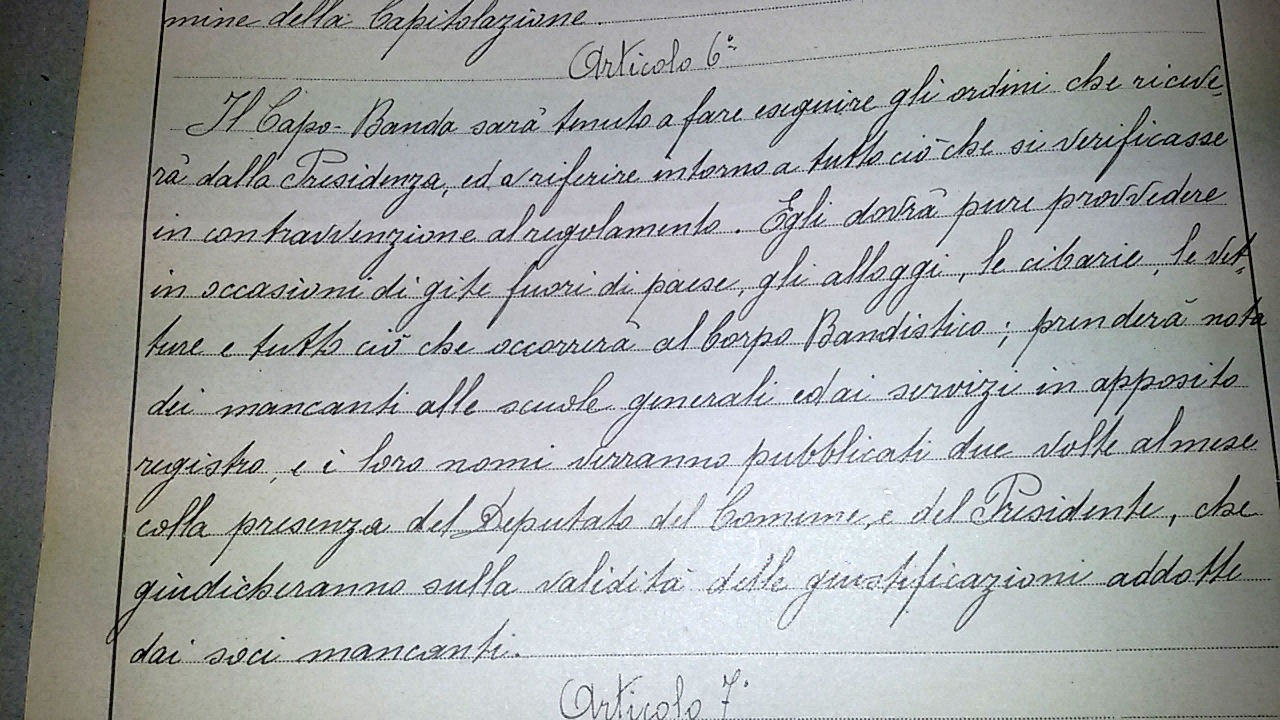 mine della Capitolazione.
Articolo 6°
Il Capo-Banda sarà tenuto a fare eseguire gli ordini che riceve-
rà dalla Presidenza, ed a riferire intorno a tutto ciò che si verificasse
in contravvenzione al regolamento. Egli dovrà pure provvedere
in occasioni di gite fuori di paese, gli alloggi, le cibarie, le vet-
ture e tutto ciò che occorrerà al Corpo Bandistico; prenderà nota
dei mancanti alle scuole generali ed ai servizi in apposito
registro, e i loro nomi verranno pubblicati due volte al mese
colla presenza del Deputato del Comune, e del Presidente, che
giudicheranno sulla validità delle giustificazioni addotte
dai soci mancanti.
Articolo 7°